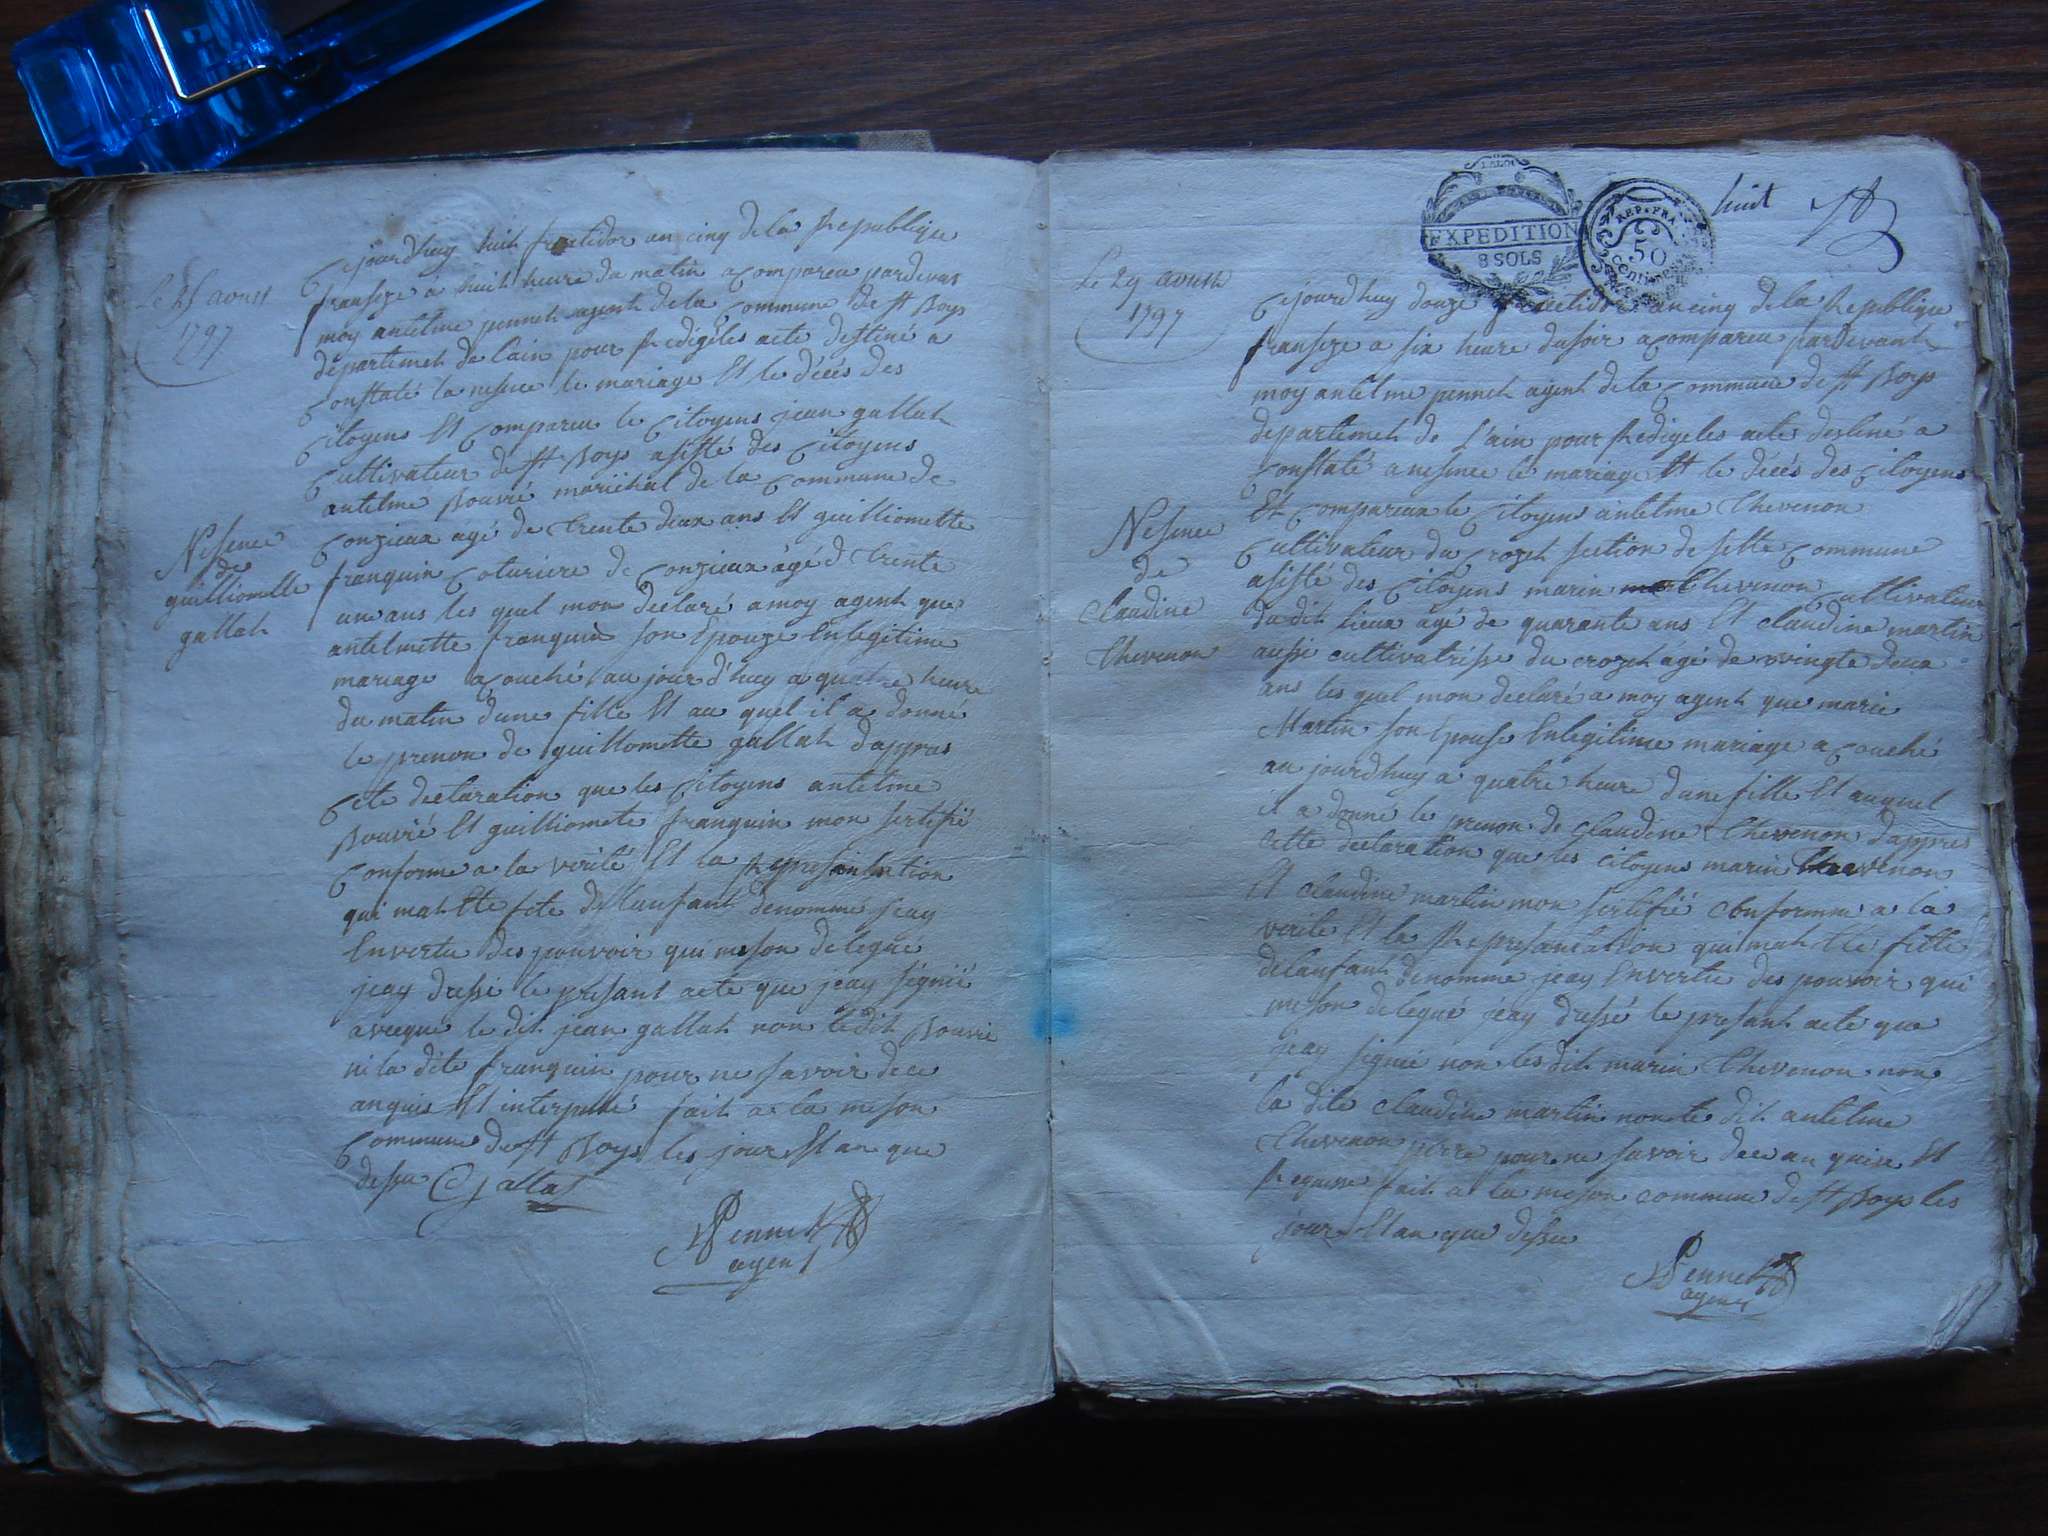 Le 25 aoust
1797
Nessence
de
guilliomette
gallat
Cejourdhuy huit fructidor an cinq de la Republique
franseze a huit heure du matin a Compareu pardevant
moy antelme pennet agent de la Commune de St Boys
departemet de lain pour Redigé les acte destiné a
Constaté la nesence le mariage Et le décés des
Citoyens Et Compareu le Citoyens jean gallat
Cultivateur de St Boys asisté des Citoyens
antelme Bouvié marichal de la Commune de
Conzieux agé de trente deux ans Et guilliomette
franquin Coturiere de Conzieux agé d trente
un ans les quel mon declaré a moy agent que
antelmette franquin son Epouze En legitime
mariage a Couché au jour d'huy a quatre heure
du matin dune fille Et au quel il a donné
le prenon de guillomette gallat dappres
Cete declaration que les Citoyens antelme
Bouvié Et guilliomete franquin mon sertifié
Conforme a la verité Et la Represantation
qui mat Ete fete de lanfant denommé jeay
En vertu des pouvoir qui me son delegué
jeay dressé le presant acte que jeay signié
avecque le dit jean gallat non ledit Bouvié
ni la dite franquin pour ne savoir de ce
anquis Et interpellé fait a la meson
Commune de St Boys les jour Et an que
dessu Gallat
Pennet
agent
EXPEDITION
8 SOLS
REP. FRA.
50
centimes
huit
Le 29 aoust
1797
Nessence
de
Claudine
Chevenon
Cejourdhuy douze fructidor an cinq de la Republique
franseze a six heure du soir a Compareu pardevant
moy antelme pennet agent de la Commune de St Boys
departemet de l'ain pour Redige les acte destiné a
Constaté a nesence le mariage Et le décés des Citoyens
Et Compareu le Citoyens antelme Chevenon
Cultivateur du Crozet section de sette Commune
asisté des Citoyens marin Chevenon Cultivateur
dudit lieux agé de quarante ans Et Claudine martin
aussi cultivatrisse du crozet agé de vingte deux
ans les quel mon declaré a moy agent que marie
Martin son Epouse En legitime mariage a Couché
au jourdhuy a quatre heure dune fille Et auquel
il a donné le prenon de Claudine Chevenon dappres
cette declaration que les citoyens marin Chevenon
Et Claudine martin mon sertifié Conforme a la
verite Et la Represantation qui mat Ete fette
de lanfant denomme jeay En vertu des pouvoir qui
me son delegué jeay dressé le presant acte que
jeay signié non les dit marin Chevenon non
la dite Claudine martin non le dit antelme
Chevenon perre pour ne savoir de ce anquise Et
Requise fait a la meson commune de St Boys les
jour Et an que dessu
Pennet
agent